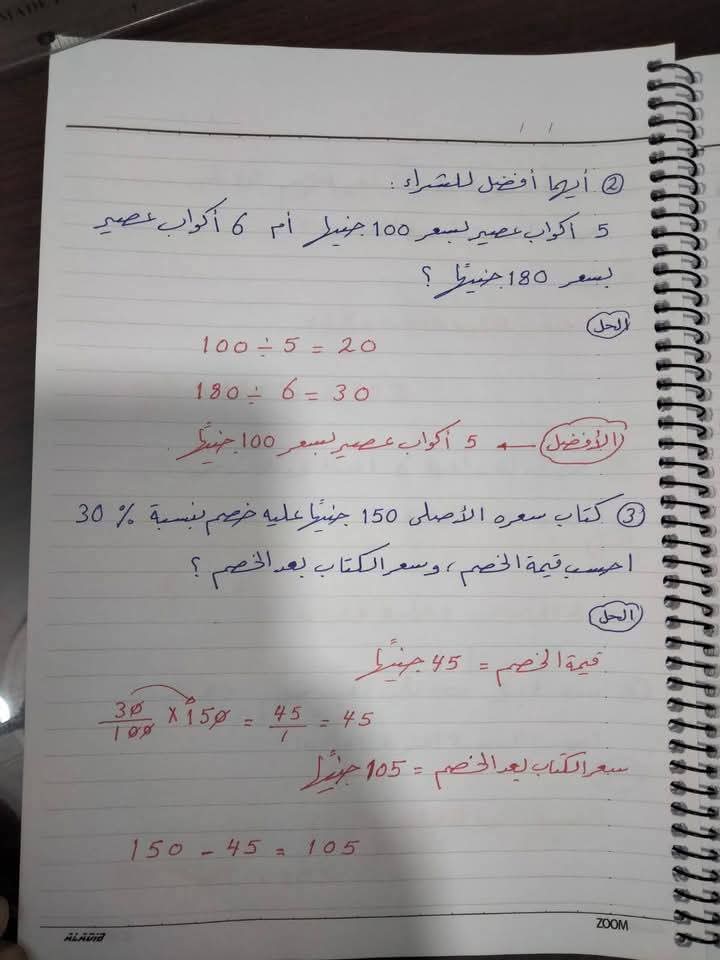 / /
② أيهما أفضل للشراء :
5 أكواب عصير بسعر 100 جنيهًا أم 6 أكواب عصير
بسعر 180 جنيهًا ؟
الحل
100 ÷ 5 = 20
180 ÷ 6 = 30
الأفضل ← 5 أكواب عصير بسعر 100 جنيهًا.
③ كتاب سعره الأصلى 150 جنيهًا عليه خصم بنسبة 30 %
احسب قيمة الخصم ، وسعر الكتاب بعد الخصم ؟
الحل
قيمة الخصم = 45 جنيهًا
30/100 × 150 = 45/1 = 45
سعر الكتاب بعد الخصم = 105 جنيهًا
150 - 45 = 105
ALADIB ZOOM